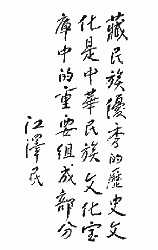 藏民族優秀的歷史文
化是中華民族文化宝
庫中的重要組成部分
江澤民